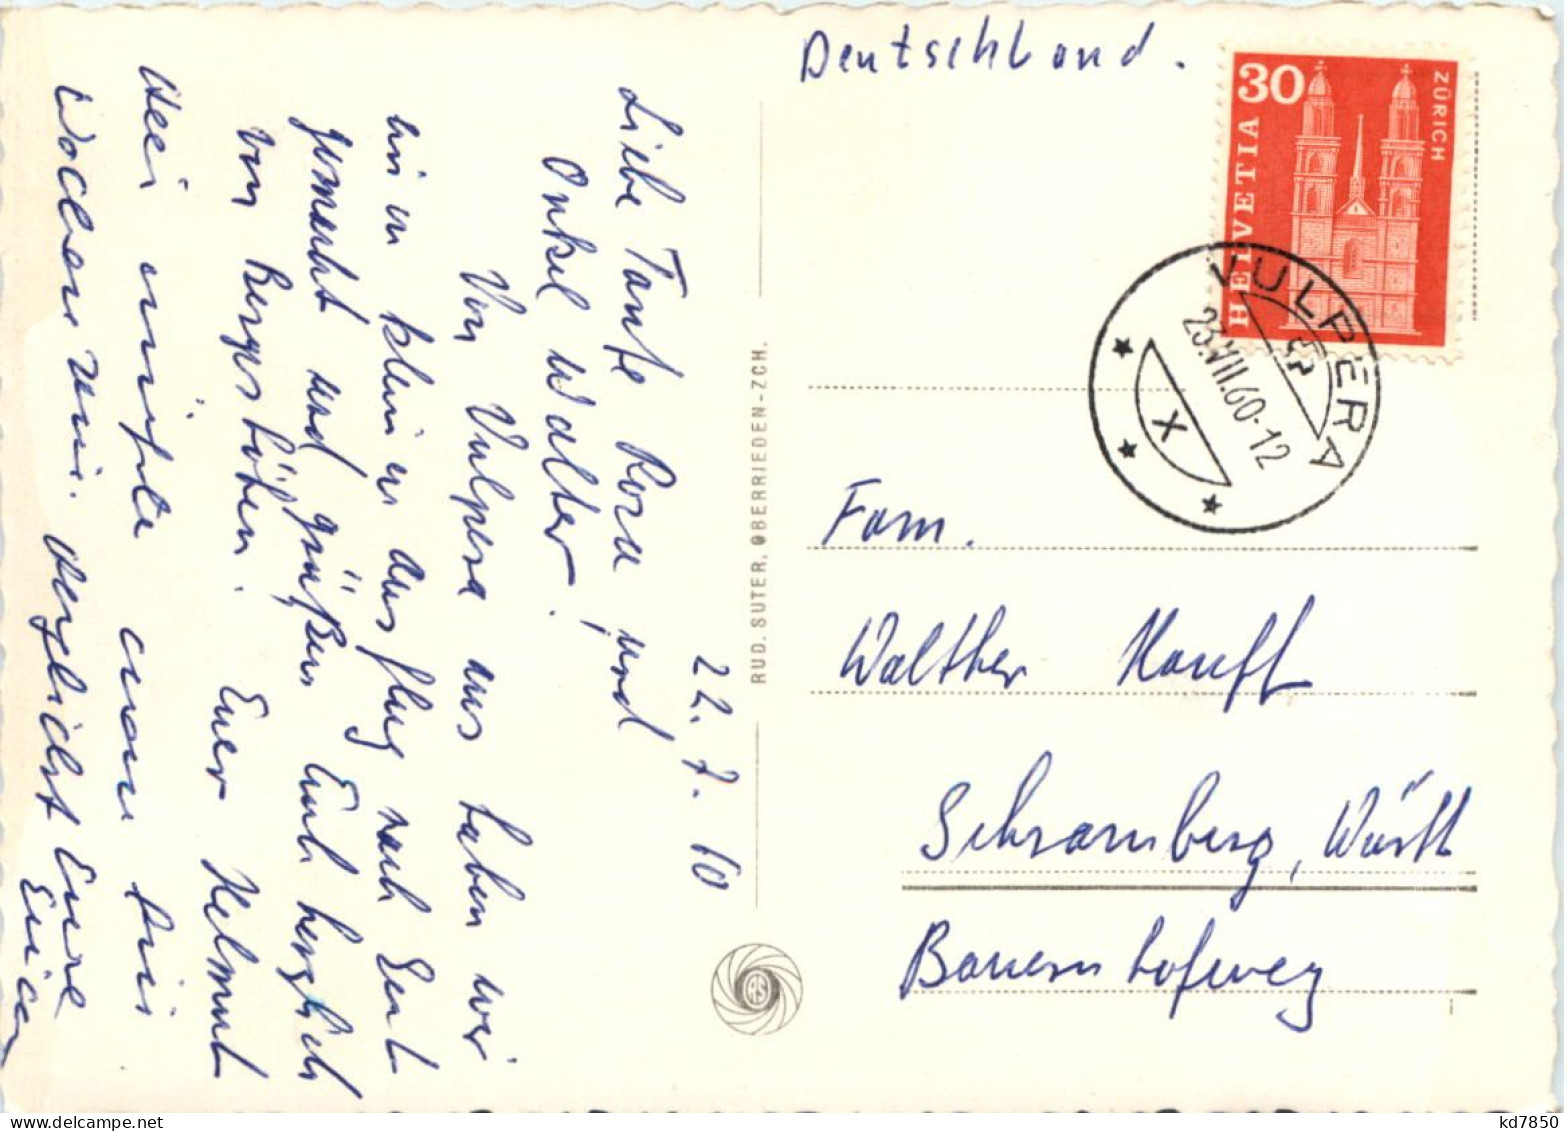 22. 7. 60
Liebe Tante Rosa und
Onkel Walter!
Von Vulpera aus haben wir
einen kleinen Ausflug nach
gemacht und grüßen Euch herzlich
von Bergeshöhen. Euer Helmut
Wochen herzlichst Eure
Erica
Deutschland.
30
HELVETIA
ZÜRICH
VULPERA
23.VII.60-12
X
Fam.
Walther Hauff
Schramberg, Württ
Bauernhofweg
RUD. SUTER, OBERRIEDEN-ZCH.
RS
kd7850